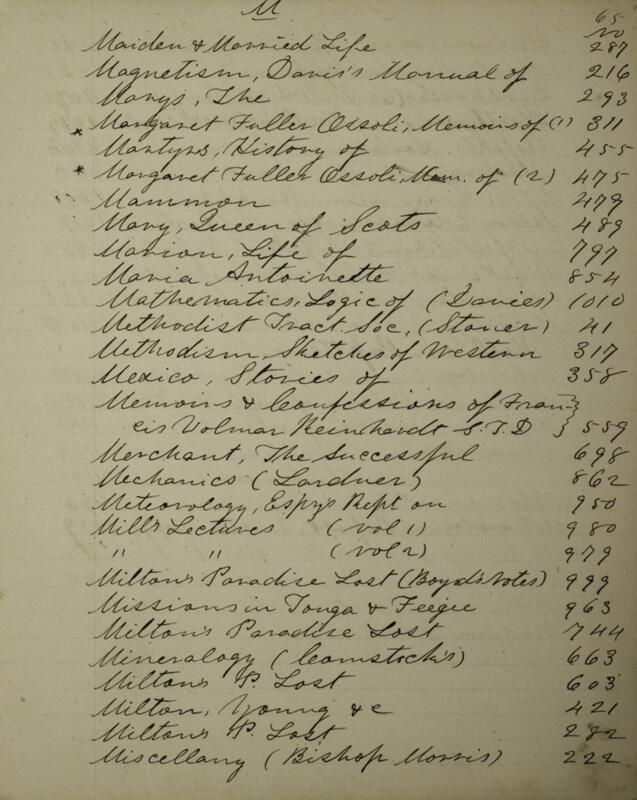 M
65
No
Maiden & Married Life 287
Magnetism, Davis's Manual of 216
Marys, The 293
* Margaret Fuller Ossoli, Memoirs of (1) 311
Martyrs, History of 455
* Margaret Fuller Ossoli, Mem. of (2) 475
Mammon 479
Mary, Queen of Scots 489
Marion, Life of 797
Maria Antoinette 854
Mathematics, Logic of (Davies) 1010
Methodist Tract Soc, (Stoner) 41
Methodism, Sketches of Western 317
Mexico, Stories of 358
Memoirs & Confessions of Fran-
cis Volmar Reinhardt S.T.D } 559
Merchant, The Successful 698
Mechanics (Lardner) 862
Meteorology, Espys Rept on 950
Mills Lectures (vol 1) 980
" " (vol 2) 979
Milton's Paradise Lost (Boyd's Notes) 999
Missions in Tonga & Feegee 963
Milton's Paradise Lost 744
Mineralogy (Comstock's) 663
Miltons P. Lost 603
Milton, Young &c 421
Miltons P. Lost 282
Miscellany (Bishop Morris) 222